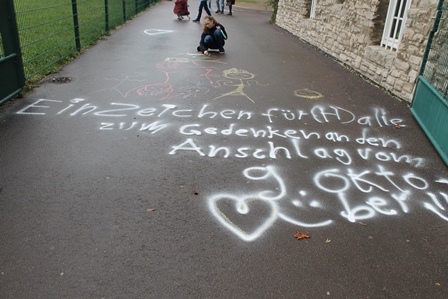 Ein Zeichen für (H)alle
zum Gedenken an den
Anschlag vom
9. Okto
ber!!